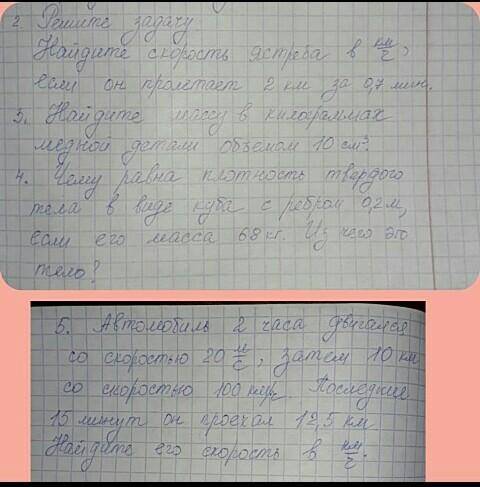 2. Решите задачу.
Найдите скорость ястреба в км/ч,
если он пролетает 2 км за 0,7 мин.
3. Найдите массу в килограммах
медной детали объемом 10 см³.
4. Чему равна плотность твердого
тела в виде куба с ребром 0,2 м,
если его масса 68 кг. Из чего это
тело?
5. Автомобиль 2 часа двигался
со скоростью 20 м/с, затем 10 км
со скоростью 100 км/ч. Последние
15 минут он проехал 12,5 км
Найдите его скорость в км/ч.